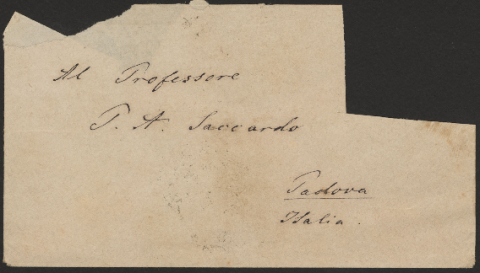 Al Professore
P. A. Saccardo
Padova
Italia.